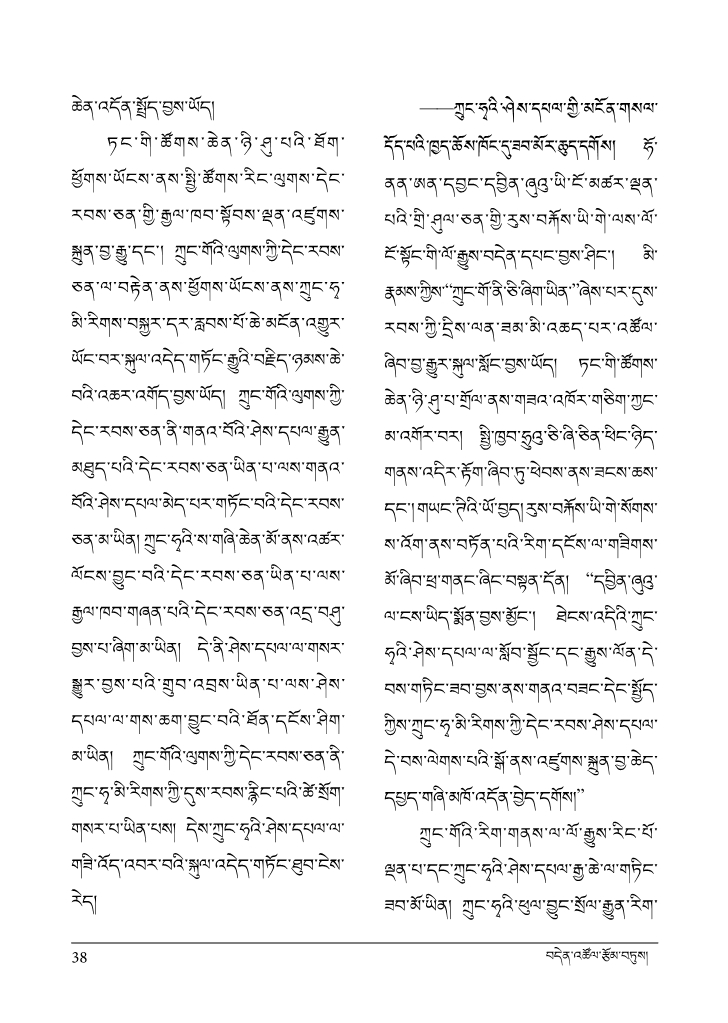 ཆེན་འདོན་སྤྲོད་བྱས་ཡོད།
ཏང་གི་ཚོགས་ཆེན་ཉི་ཤུ་པའི་ཐོག་
ཕྱོགས་ཡོངས་ནས་སྤྱི་ཚོགས་རིང་ལུགས་དེང་
རབས་ཅན་གྱི་རྒྱལ་ཁབ་སྟོབས་ལྡན་འཛུགས་
སྐྲུན་བྱ་རྒྱུ་དང་། ཀྲུང་གོའི་ལུགས་ཀྱི་དེང་རབས་
ཅན་ལ་བརྟེན་ནས་ཕྱོགས་ཡོངས་ནས་ཀྲུང་ཧྭ་
མི་རིགས་བསྐྱར་དར་རླབས་པོ་ཆེ་མངོན་འགྱུར་
ཡོང་བར་སྐུལ་འདེད་གཏོང་རྒྱུའི་བརྗིད་ཉམས་ཆེ་
བའི་འཆར་འགོད་བྱས་ཡོད། ཀྲུང་གོའི་ལུགས་ཀྱི་
དེང་རབས་ཅན་ནི་གནའ་བོའི་ཤེས་དཔལ་རྒྱུན་
མཐུད་པའི་དེང་རབས་ཅན་ཡིན་པ་ལས་གནའ་
བོའི་ཤེས་དཔལ་མེད་པར་གཏོང་བའི་དེང་རབས་
ཅན་མ་ཡིན། ཀྲུང་ཧྭའི་ས་གཞི་ཆེན་མོ་ནས་འཚར་
ལོངས་བྱུང་བའི་དེང་རབས་ཅན་ཡིན་པ་ལས་
རྒྱལ་ཁབ་གཞན་པའི་དེང་རབས་ཅན་འདྲ་བཤུ་
བྱས་པ་ཞིག་མ་ཡིན། དེ་ནི་ཤེས་དཔལ་ལ་གསར་
སྒྱུར་བྱས་པའི་གྲུབ་འབྲས་ཡིན་པ་ལས་ཤེས་
དཔལ་ལ་གས་ཆག་བྱུང་བའི་ཐོན་དངོས་ཤིག་
མ་ཡིན། ཀྲུང་གོའི་ལུགས་ཀྱི་དེང་རབས་ཅན་ནི་
ཀྲུང་ཧྭ་མི་རིགས་ཀྱི་དུས་རབས་རྙིང་པའི་ཚེ་སྲོག་
གསར་པ་ཡིན་པས། དེས་ཀྲུང་ཧྭའི་ཤེས་དཔལ་ལ་
གཟི་འོད་འབར་བའི་སྐུལ་འདེད་གཏོང་ཐུབ་ངེས་
རེད།
——ཀྲུང་ཧྭའི་ཤེས་དཔལ་གྱི་མངོན་གསལ་
དོད་པའི་ཁྱད་ཆོས་ཁོང་དུ་ཟབ་མོར་ཆུད་དགོས། ཧོ་
ནན་ཨན་དབྱང་དབྱིན་ཞུའུ་ཡི་ངོ་མཚར་ལྡན་
པའི་གྲི་ཤུལ་ཅན་གྱི་རུས་བརྐོས་ཡི་གེ་ལས་ལོ་
ངོ་སྟོང་གི་ལོ་རྒྱུས་བདེན་དཔང་བྱས་ཤིང་། མི་
རྣམས་ཀྱིས“ཀྲུང་གོ་ནི་ཅི་ཞིག་ཡིན”ཞེས་པར་དུས་
རབས་ཀྱི་དྲིས་ལན་ཟམ་མི་འཆད་པར་འཚོལ་
ཞིབ་བྱ་རྒྱུར་སྐུལ་སློང་བྱས་ཡོད། ཏང་གི་ཚོགས་
ཆེན་ཉི་ཤུ་པ་གྲོལ་ནས་གཟའ་འཁོར་གཅིག་ཀྱང་
མ་འགོར་བར། སྤྱི་ཁྱབ་ཧྲུའུ་ཅི་ཞི་ཅིན་ཕིང་ཉིད་
གནས་འདིར་རྟོག་ཞིབ་ཏུ་ཕེབས་ནས་ཟངས་ཆས་
དང་། གཡང་ཊིའི་ཡོ་བྱད། རུས་བརྐོས་ཡི་གེ་སོགས་
ས་འོག་ནས་བཏོན་པའི་རིག་དངོས་ལ་གཟིགས་
མོ་ཞིབ་ཕྲ་གནང་ཞིང་བསྟན་དོན། “དབྱིན་ཞུའུ་
ལ་ངས་ཡིད་སྨོན་བྱས་མྱོང་། ཐེངས་འདིའི་ཀྲུང་
ཧྭའི་ཤེས་དཔལ་ལ་སློབ་སྦྱོང་དང་རྒྱུས་ལོན་དེ་
བས་གཏིང་ཟབ་བྱས་ནས་གནའ་བཟང་དེང་སྤྱོད་
ཀྱིས་ཀྲུང་ཧྭ་མི་རིགས་ཀྱི་དེང་རབས་ཤེས་དཔལ་
དེ་བས་ལེགས་པའི་སྒོ་ནས་འཛུགས་སྐྲུན་བྱ་ཆེད་
དཔྱད་གཞི་མཁོ་འདོན་བྱེད་དགོས།”
ཀྲུང་གོའི་རིག་གནས་ལ་ལོ་རྒྱུས་རིང་པོ་
ལྡན་པ་དང་ཀྲུང་ཧྭའི་ཤེས་དཔལ་རྒྱ་ཆེ་ལ་གཏིང་
ཟབ་མོ་ཡིན། ཀྲུང་ཧྭའི་ཕུལ་བྱུང་སྲོལ་རྒྱུན་རིག་
38
བདེན་འཚོལ་རྩོམ་བཏུས།